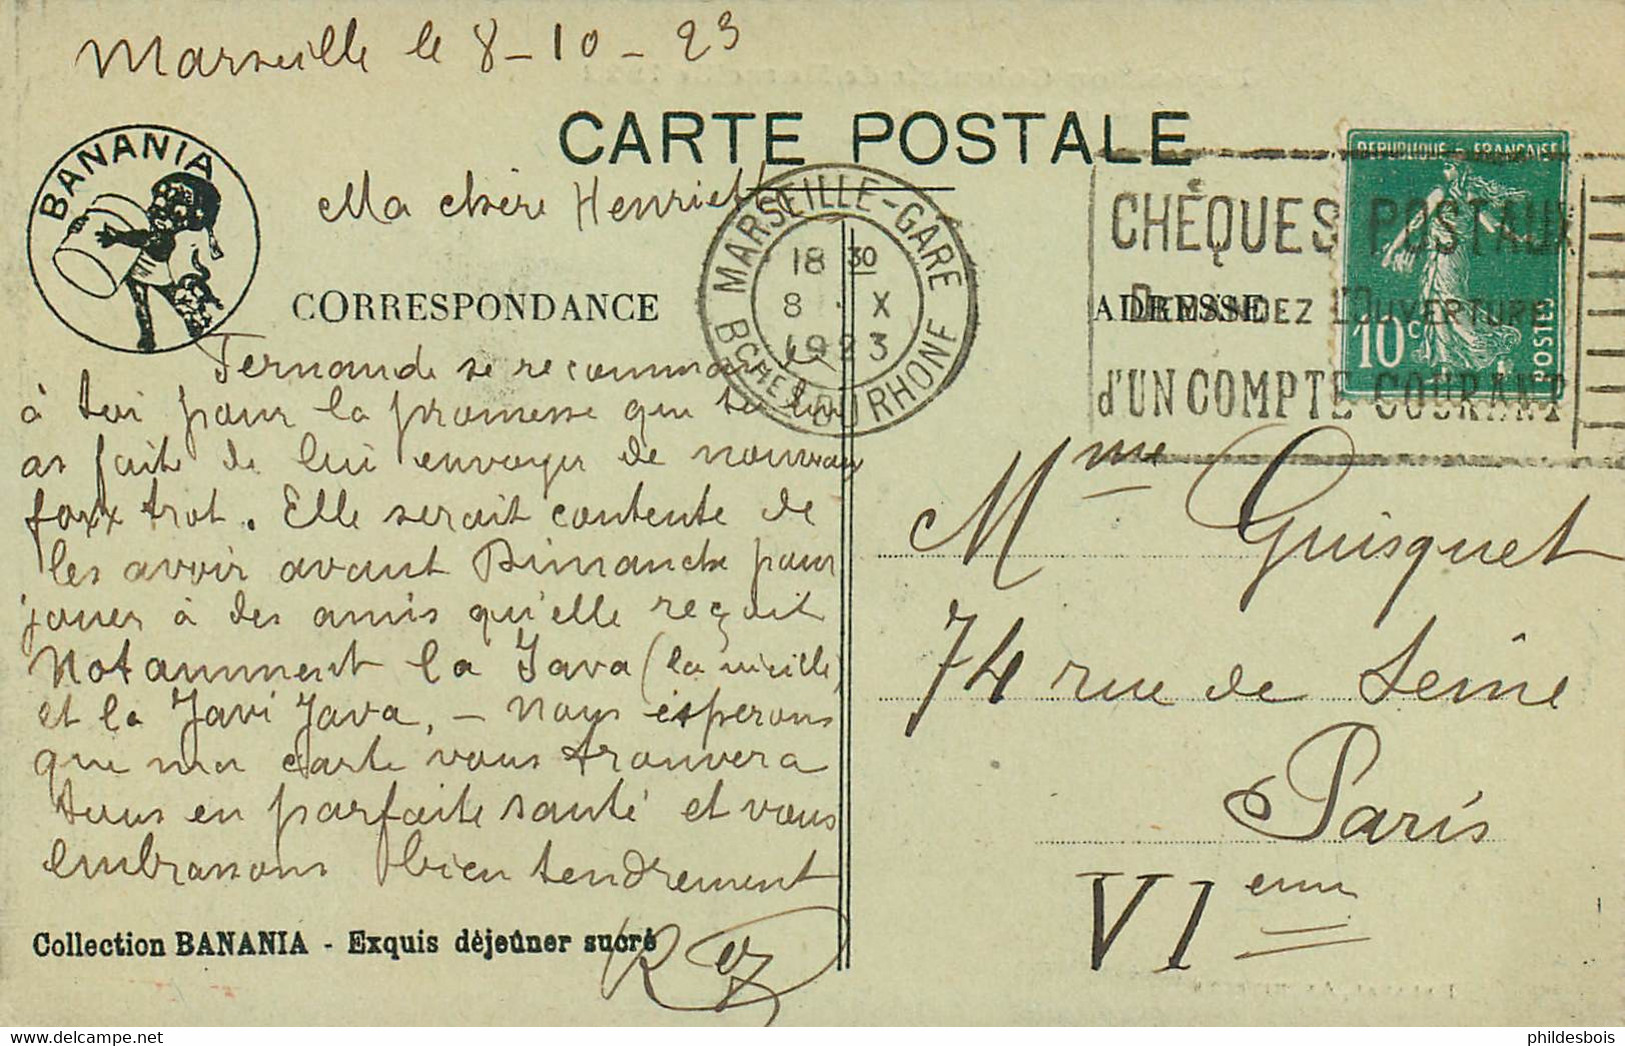 Marseille le 8-10-23
CARTE POSTALE
BANANIA
Ma chère Henriette
MARSEILLE-GARE
18 30
8 X
1923
BCHES DU RHONE
RÉPUBLIQUE FRANÇAISE
10 c
POSTES
CHÈQUES POSTAUX
DEMANDEZ L'OUVERTURE
d'UN COMPTE COURANT
CORRESPONDANCE
ADRESSE
Fernande se recommande
à toi pour la promesse que tu lui
as faite de lui envoyer de nouveaux
foxx trot. Elle serait contente de
les avoir avant Dimanche pour
jouer à des amis qu'elle reçoit
Notamment la Java (la vieille)
et la Javi Java, - Nous ésperons
que ma carte vous trouvera
tous en parfaite santé et vous
embrassons bien tendrement
Mme Guisquet
74 rue de Seine
Paris
VIeme
Collection BANANIA - Exquis déjeûner sucré
phildesbois
delcampe.net